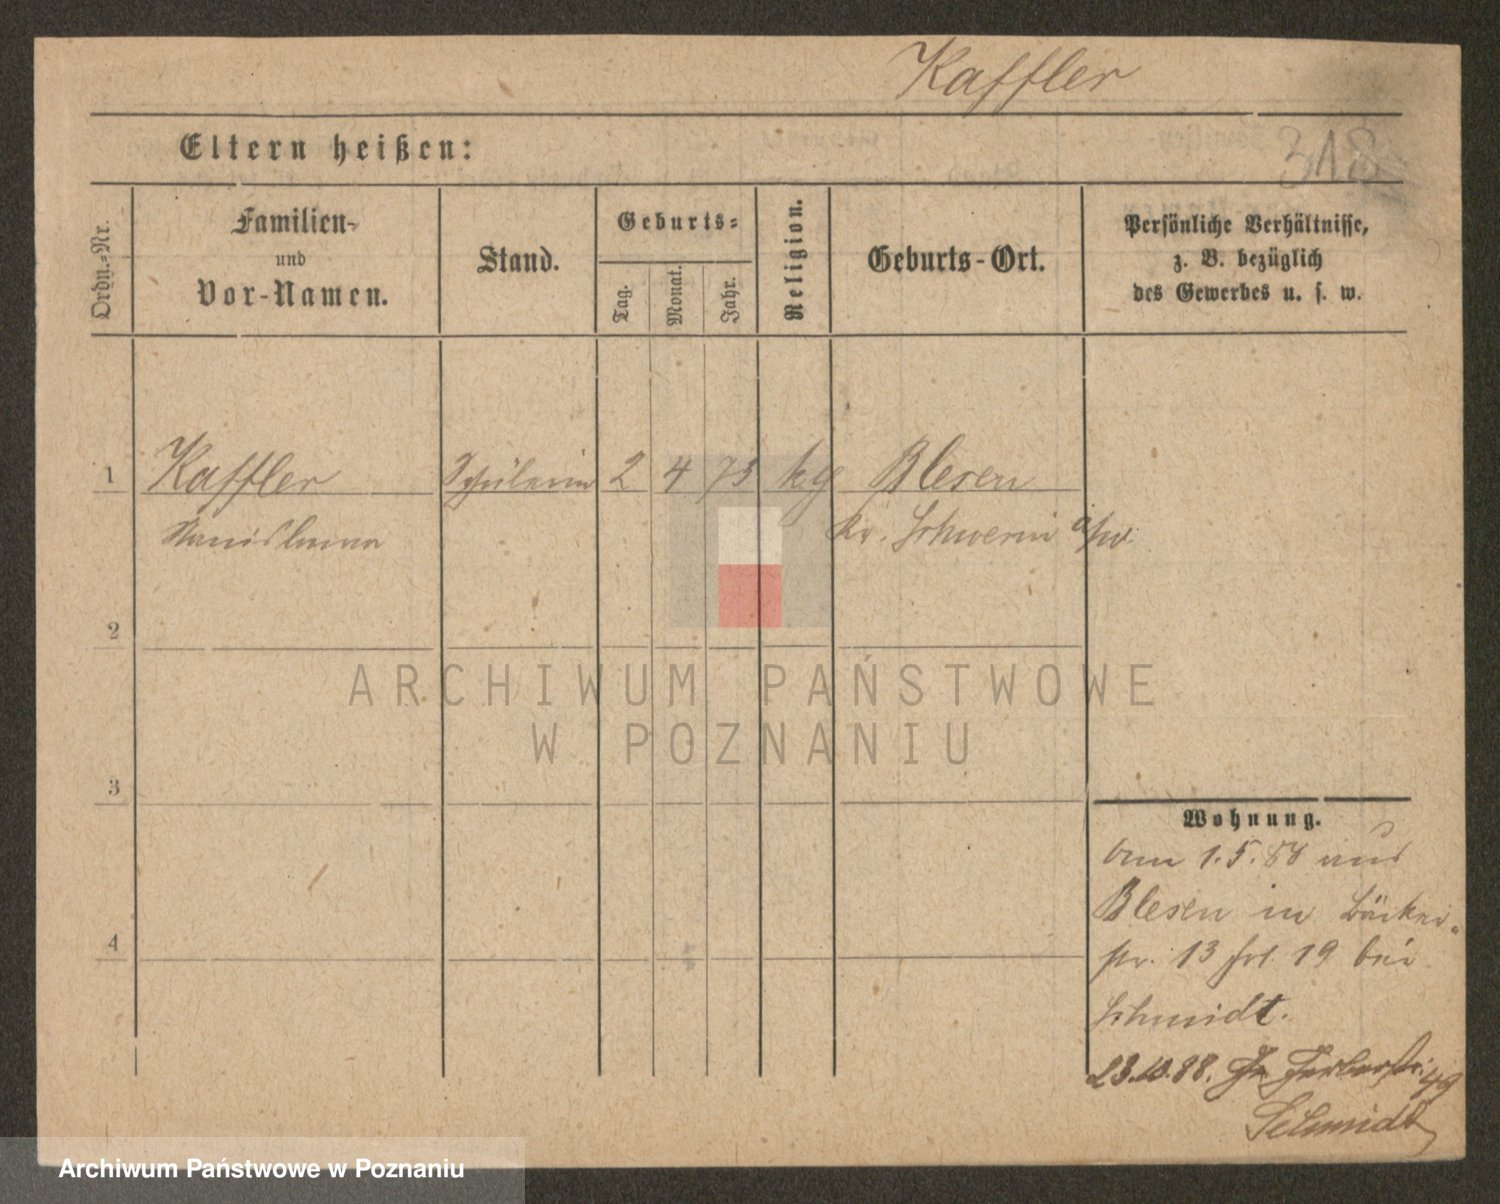 Kaffler
318
Eltern heißen:
Ordn.-Nr.
Familien-
und
Vor-Namen.
Stand.
Geburts-
Tag.
Monat.
Jahr.
Religion.
Geburts-Ort.
Persönliche Verhältnisse,
z. B. bezüglich
des Gewerbes u. s. w.
1 Kaffler Schülerin 2 4 75 kg Blesen
Stanislawa Kr. Schwerin a/W.
2
ARCHIWUM PAŃSTWOWE
W POZNANIU
3
Wohnung.
1.5.88 aus
Blesen in Bäcker-
str. 13 19 bei
Schmidt.
4
23.10.88. Gerberstr. 49
Schmidt
Archiwum Państwowe w Poznaniu